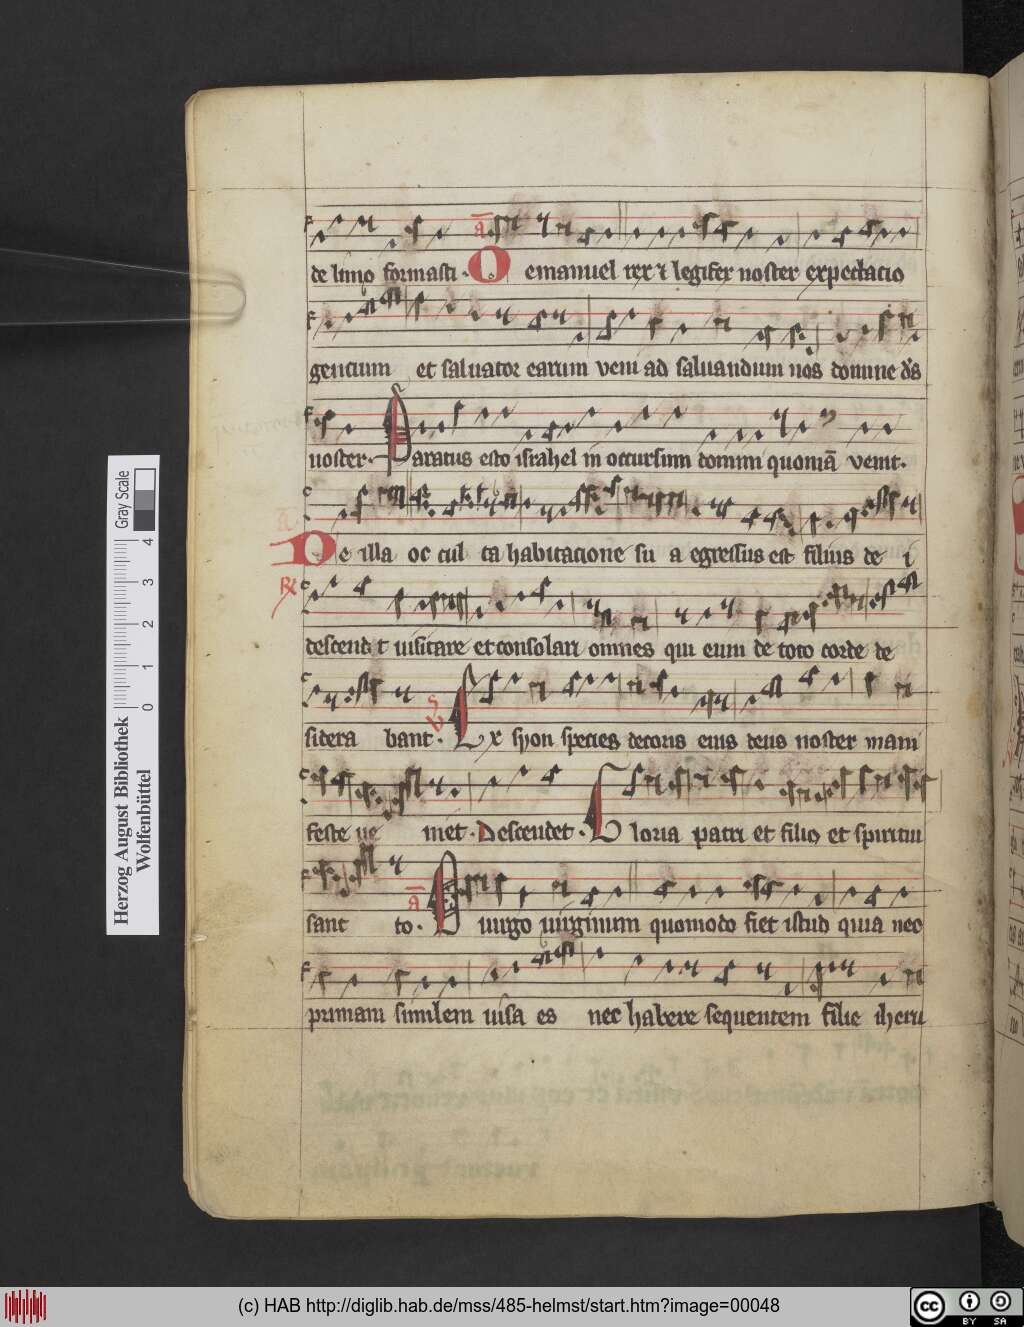 de limo formasti. O emanuel rex et legifer noster expectacio
gencium et saluator earum veni ad saluandum nos domine ds
noster. Paratus esto israhel in occursum domini quoniā venit.
De illa oc cul ta habitacione su a egressus est filius de i
descendit uisitare et consolari omnes qui eum de toto corde de
sidera bant. Ex syon species decoris eius deus noster mani
feste ue niet. Descendet. Gloria patri et filio et spiritui
sanc to. O uirgo uirginum quomodo fiet istud quia nec
primam similem uisa es nec habere sequentem filie iheru
Gray Scale
0 1 2 3 4
Herzog August Bibliothek
Wolfenbüttel
(c) HAB http://diglib.hab.de/mss/485-helmst/start.htm?image=00048
cc BY SA